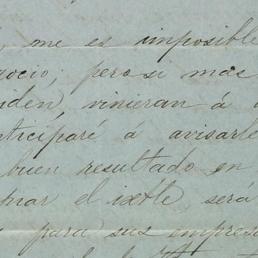 , me es imposible
ocio, pero si mas
iden, vinieran á
nticiparé á avisarle
buen resultado en
mar el ixtle será
para sus empres